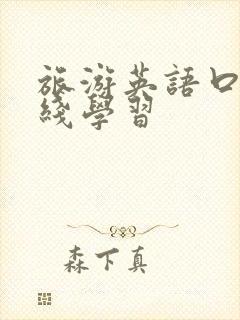 旅游英語口
綫學習
森下真